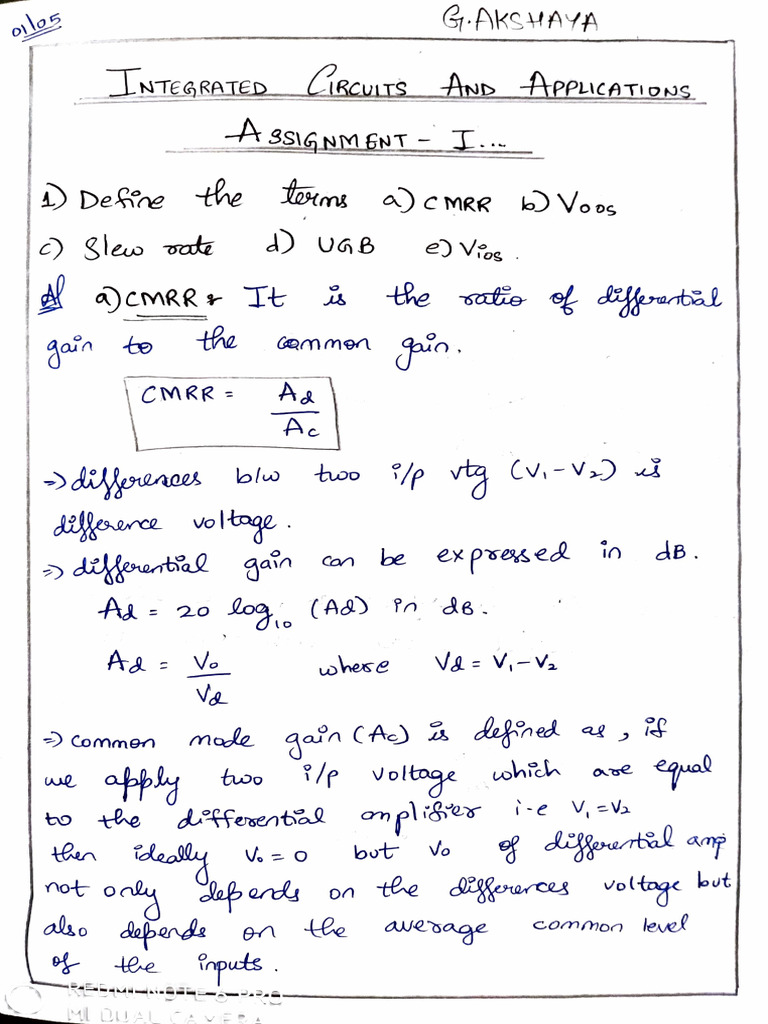 01/05
G.AKSHAYA
INTEGRATED CIRCUITS AND APPLICATIONS
ASSIGNMENT - I...
1) Define the terms a) CMRR b) Voos
c) Slew rate d) UGB e) Vios.
A) a) CMRR: It is the ratio of differential
gain to the common gain.
CMRR = Ad
Ac
=> differences b/w two i/p vtg (V1-V2) is
difference voltage.
=> differential gain can be expressed in dB.
Ad = 20 log10 (Ad) in dB.
Ad = Vo where Vd = V1-V2
Vd
=> common mode gain (Ac) is defined as, if
we apply two i/p voltage which are equal
to the differential amplifier i.e V1=V2
then ideally Vo=0 but Vo of differential amp
not only depends on the differences voltage but
also depends on the average common level
of the inputs.
REDMI NOTE 6 PRO
MI DUAL CAMERA